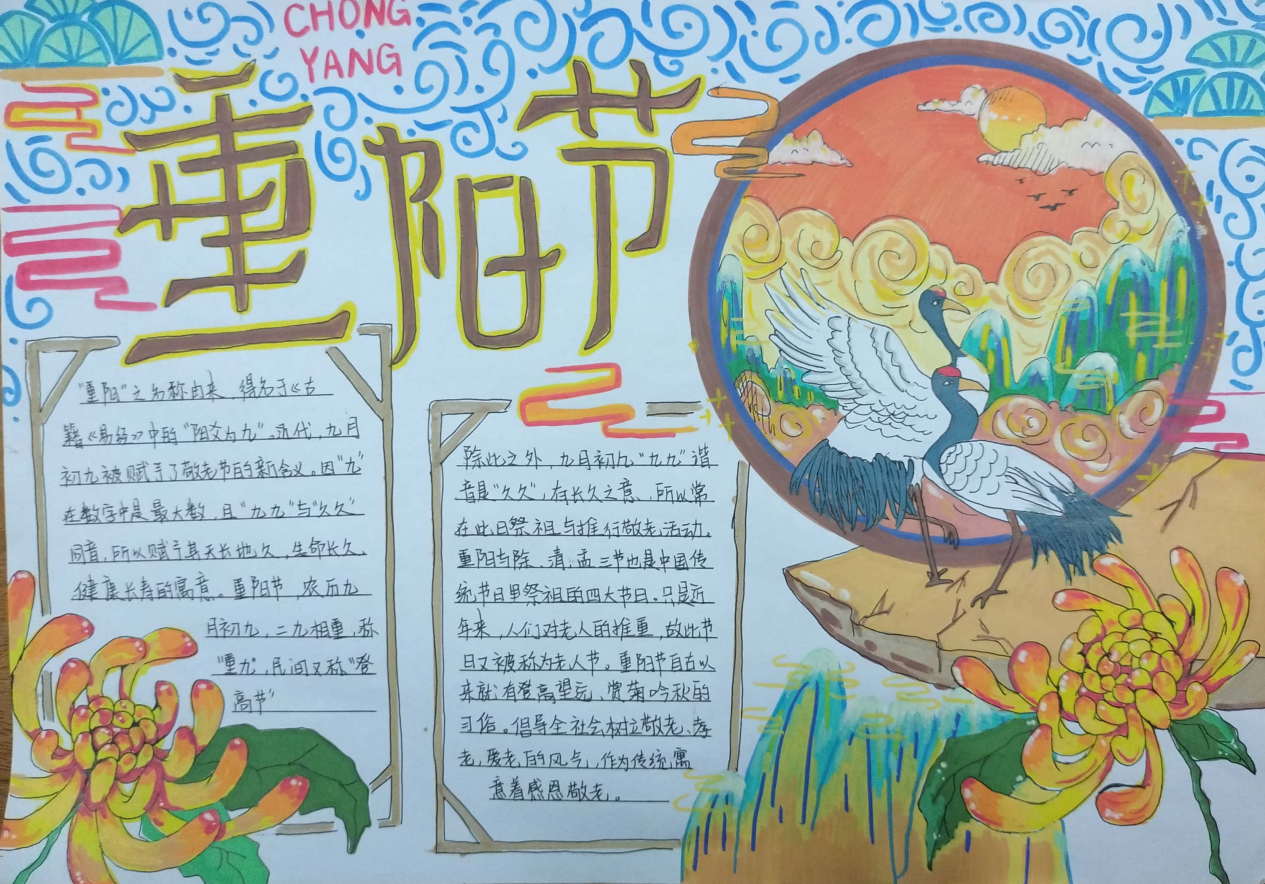 CHONG
YANG
重阳节
"重阳"之名称由来，得名于《古
籍《易经》中的"阳爻为九"。九代，九月
初九被赋予了敬老节的新含义。因"九"
在数字中是最大数，且"九九"与"久久"
同音，所以赋予其天长地久，生命长久，
健康长寿的寓意。重阳节，农历九
月初九，二九相重，称
"重九"，民间又称"登
高节"
除此之外，九月初九"九九"谐
音是"久久"，有长久之意，所以常
在此日祭祖与推行敬老活动，
重阳与除、清、盂三节也是中国传
统节日里祭祖的四大节日。只是近
年来，人们对老人的推重，故此节
日又被称为老人节。重阳节自古以
来就有登高望远、赏菊吟秋的
习俗。倡导全社会树立敬老、孝
老，爱老的风气，作为传统寓
意着感恩敬老。